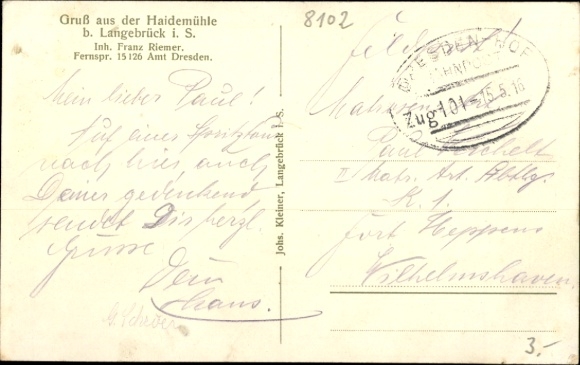 Gruß aus der Haidemühle
b. Langebrück i. S.
Inh. Franz Riemer.
Fernspr. 15126 Amt Dresden.
Mein lieber Paul!
Auf einer
nach hier, auch
Deiner gedenkend
sendet Dir herzl.
Grüsse
Dein
Hans.
Johs. Kleiner, Langebrück i. S.
8102
DRESDEN HOF
BAHNPOST
Zug 101 15.5.16
Feldpost!
Matrosen
Paul
II Matr. Art. Abtlg.
K. 1.
Fort Heppens
Wilhelmshaven
3.-